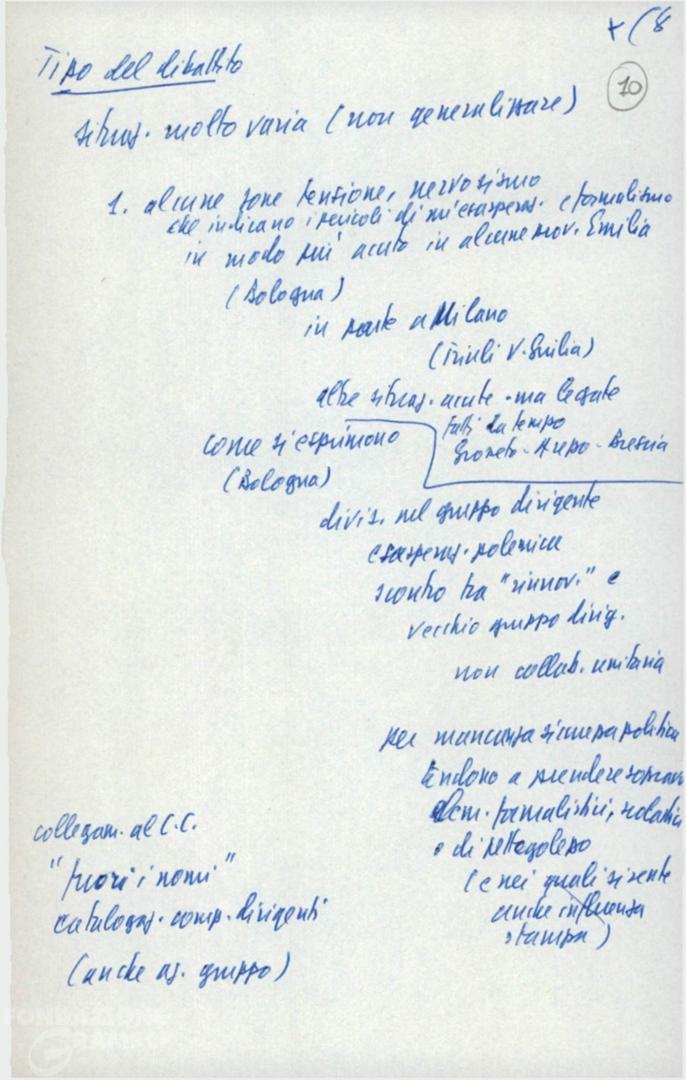 +(8
10
Tipo del dibattito
situaz. molto varia (non generalizzare)
1. alcune zone tensione, nervosismo
che indicano i pericoli di un'esasperaz. e formalismo
in modo più acuto in alcune prov. Emilia
(Bologna)
in parte a Milano
(Friuli V. Giulia)
altre situaz. acute - ma legate
fatti da tempo
Grosseto - Arezzo - Brescia
come si esprimono
(Bologna)
divis. nel gruppo dirigente
esasperaz. polemica
scontro tra "rinnov." e
vecchio gruppo dirig.
non collab. unitaria
per mancanza sicurezza politica
tendono a prendere soprav
elem. formalistici, scolastici
o di pettegolezzo
(e nei quali si sente
anche influenza
stampa)
collegam. al C.C.
"fuori i nomi"
catalogaz. comp. dirigenti
(anche as. gruppo)
FONDAZIONE
GRAMSCI